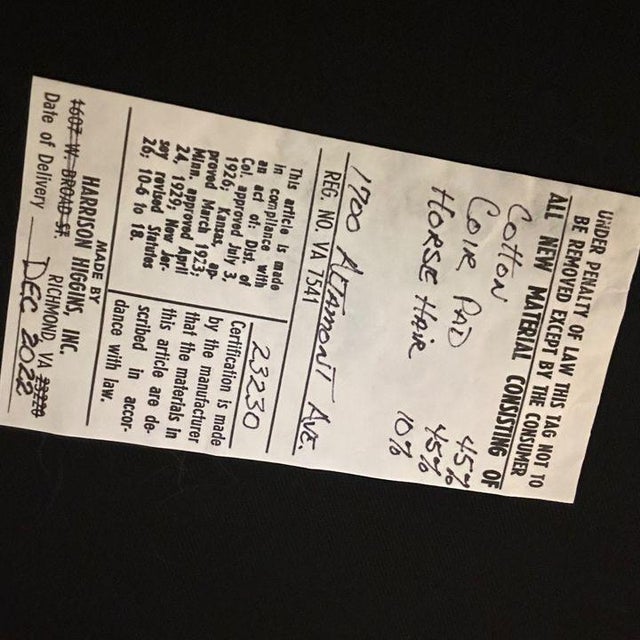 UNDER PENALTY OF LAW THIS TAG NOT TO
BE REMOVED EXCEPT BY THE CONSUMER
ALL NEW MATERIAL CONSISTING OF
COTTON 45%
COIR PAD 45%
HORSE HAIR 10%
1700 ALTAMONT AVE.
REG. NO. VA 7541
This article is made
in compliance with
an act of: Dist. of
Col. approved July 3,
1926, Kansas, ap-
proved March 1923,
Minn. approved April
24, 1929, New Jer-
sey revised Statutes
26, 10-6 to 18.
23230
Certification is made
by the manufacturer
that the materials in
this article are de-
scribed in accor-
dance with law.
MADE BY
HARRISON HIGGINS, INC.
1607 W. BROAD ST. RICHMOND, VA 23220
Date of Delivery DEC 2022